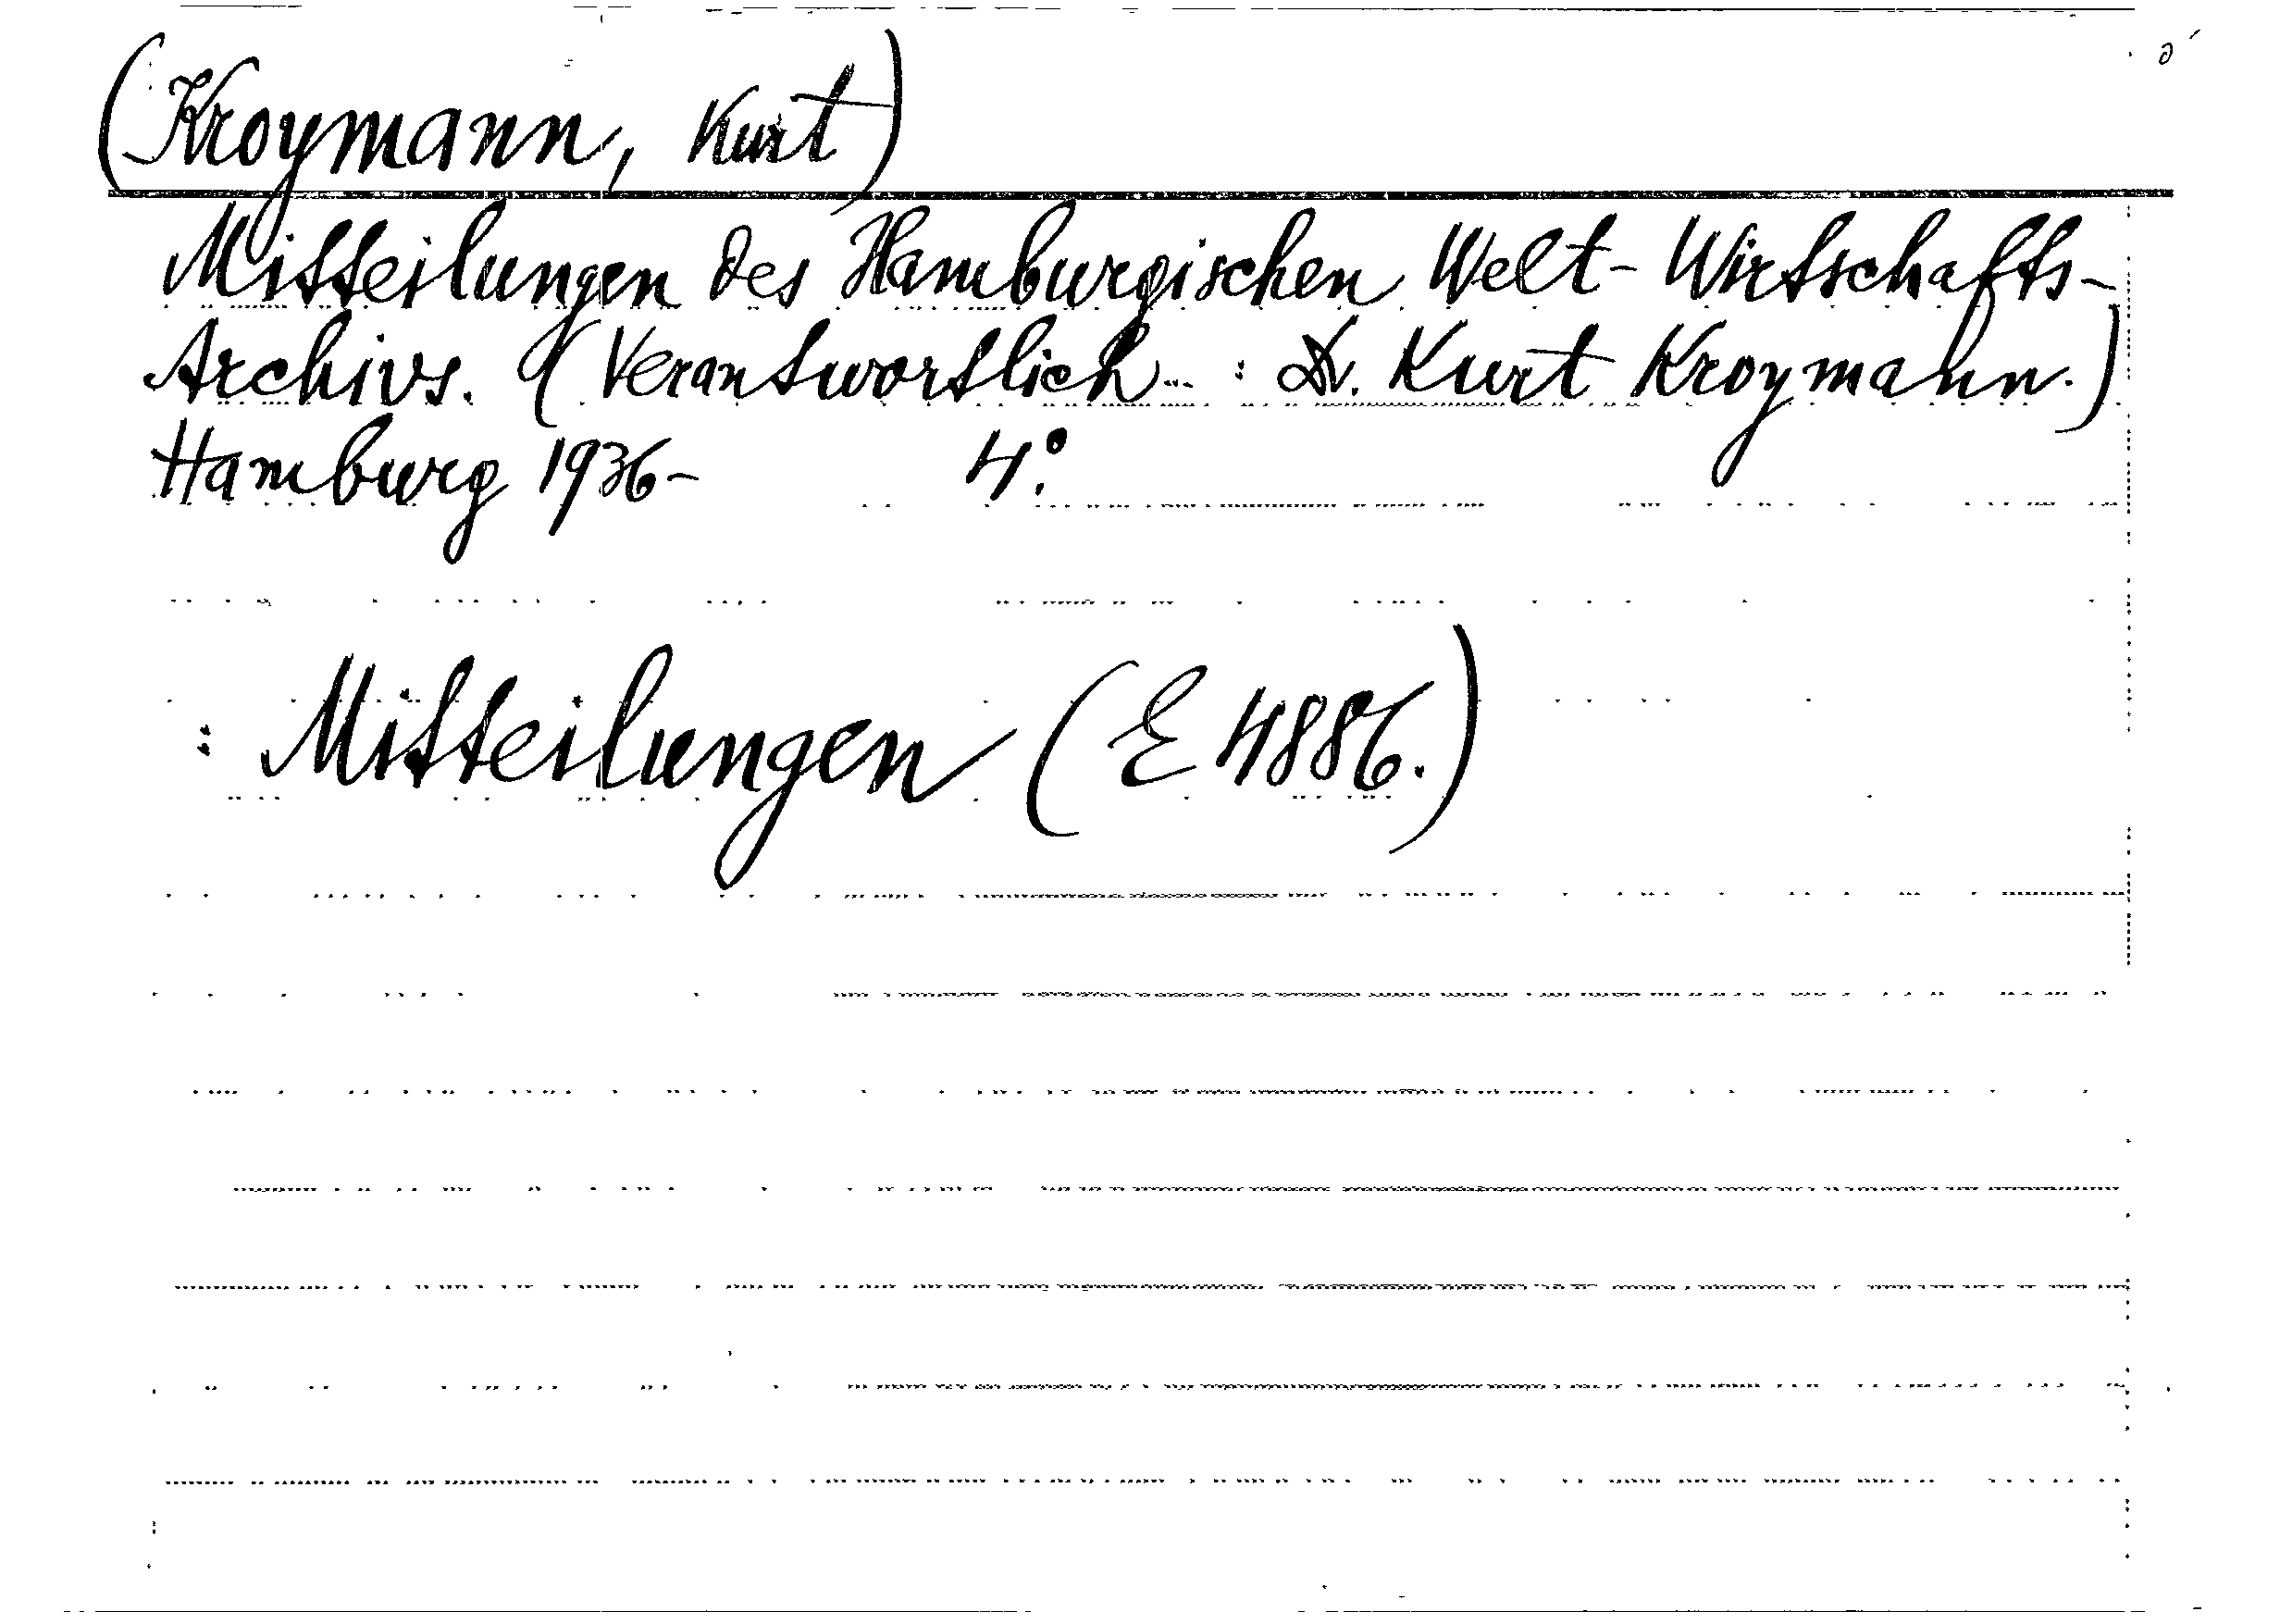 (Kroymann, Kurt)
Mitteilungen des Hamburgischen Welt-Wirtschafts-
Archivs. (Verantwortlich...: Dr. Kurt Kroymann.)
Hamburg 1936- 4°.
: Mitteilungen (E 4886.)